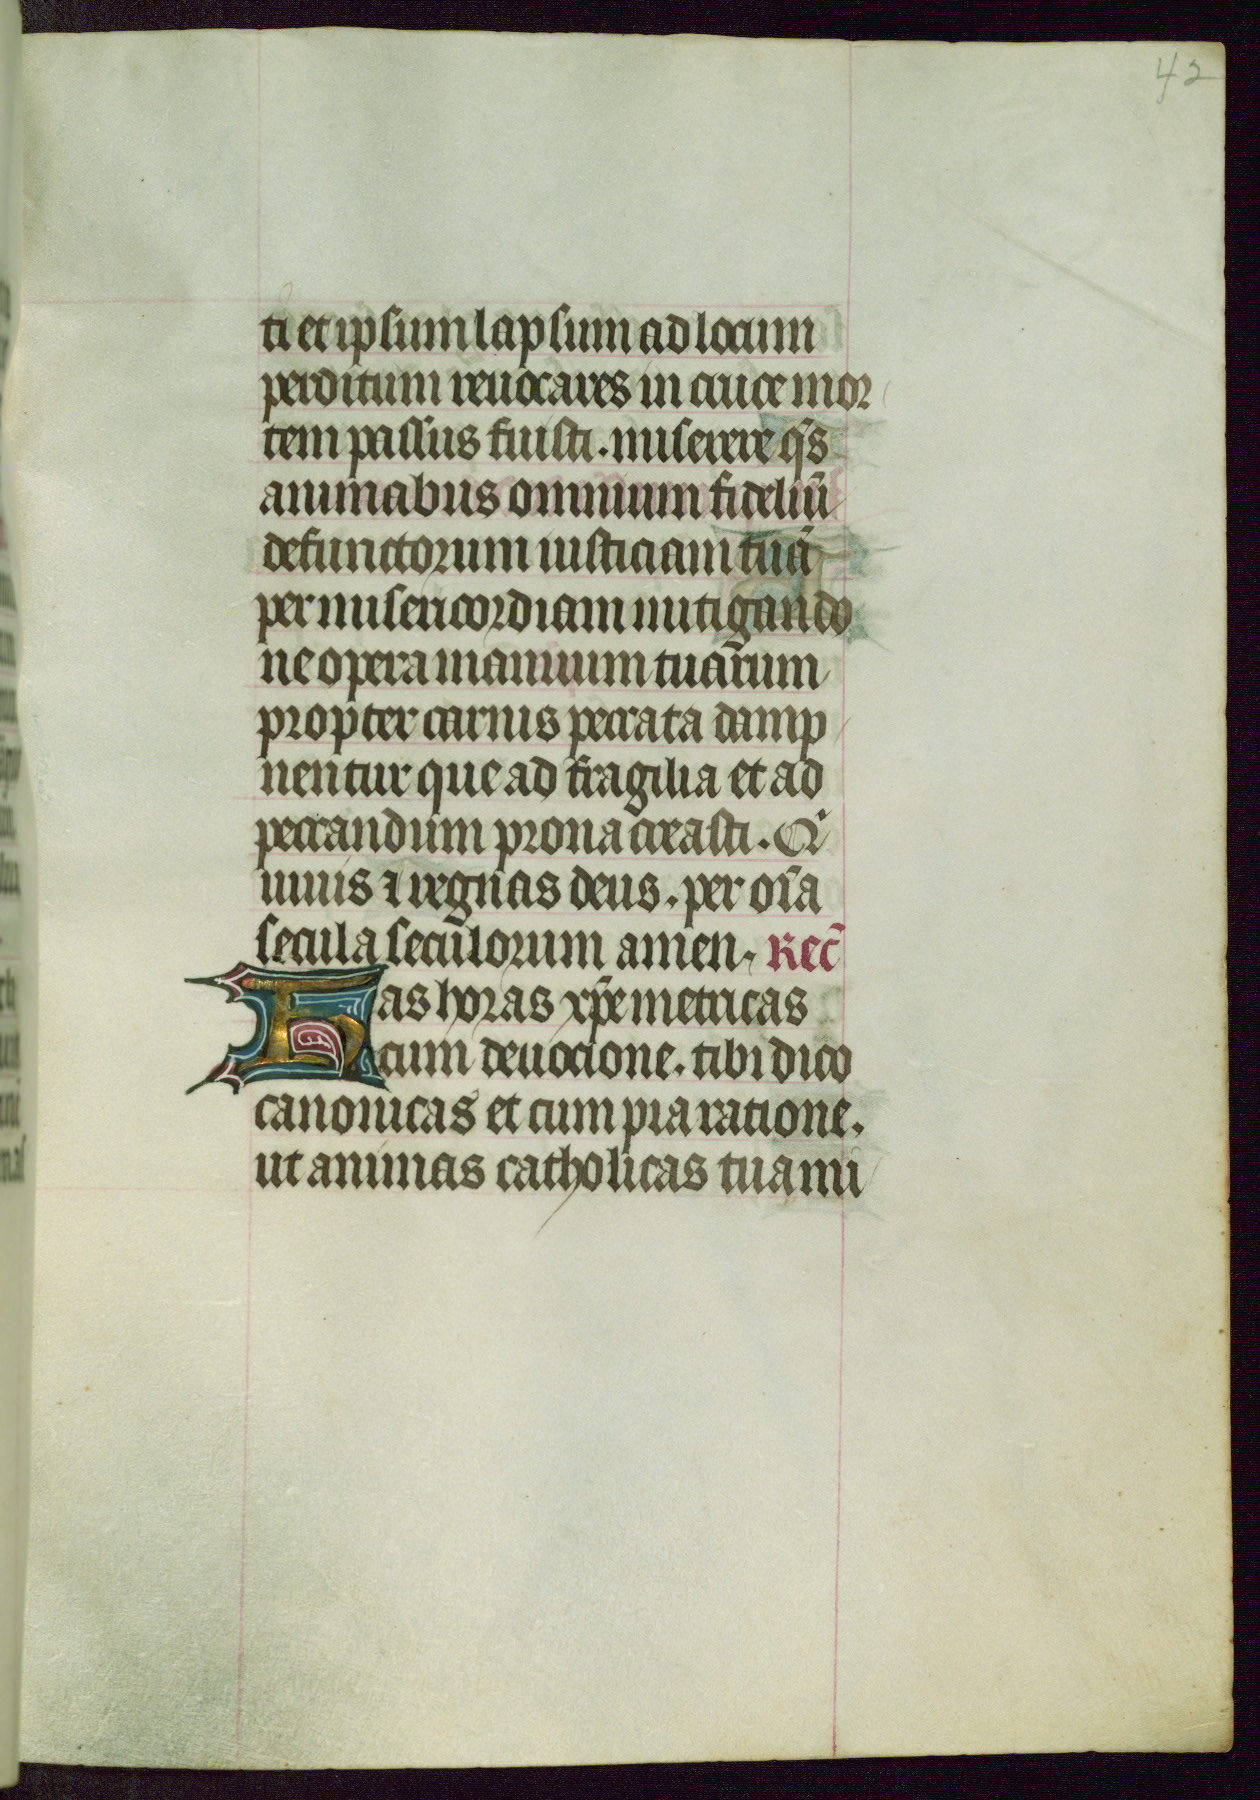 42
ti et ipsum lapsum ad locum
perditum reuocares in cruce mor
tem passus fuisti. miserere q̄s
animabus omnium fideliū
defunctorum iusticiam tuā
per misericordiam mitigando
ne opera manuum tuarum
propter carnis peccata damp
nentur que ad fragilia et ad
peccandum prona creasti. Qͥ
uiuis ⁊ regnas deus. per oīa
secula seculorum amen. Rec̄
Has horas xp̄e metricas
cum deuocione. tibi dico
canonicas et cum pia ratione.
ut animas catholicas tua mi